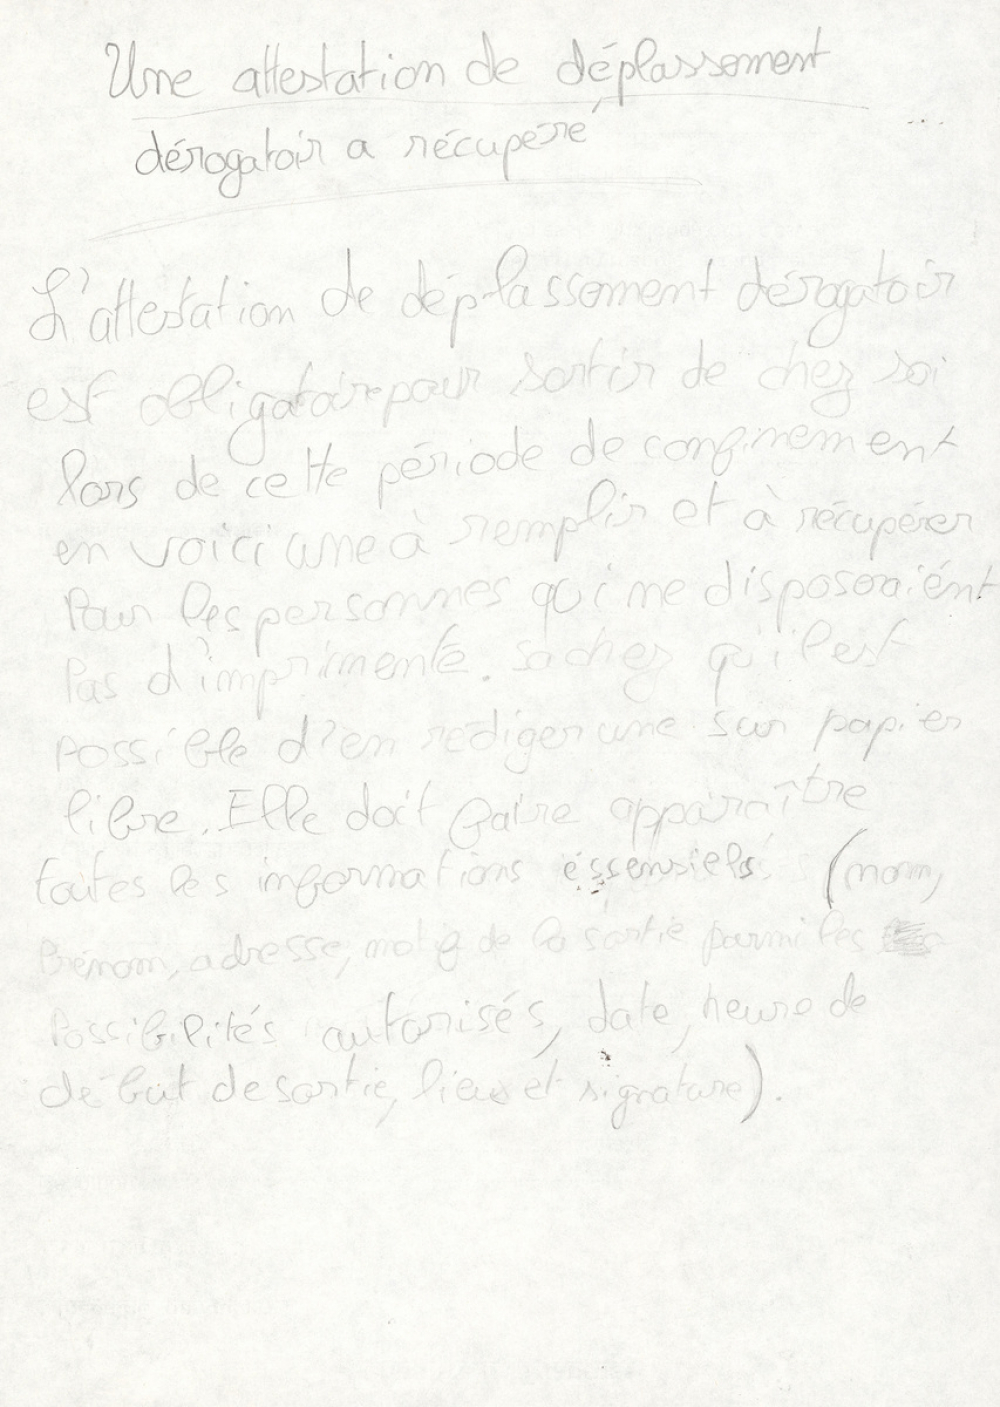 Une attestation de déplassement
dérogatoir a récupéré
L'attestation de déplassement dérogatoir
est obligatoire pour sortir de chez soi
lors de cette période de confinement
en voici une à remplir et à récupérer
Pour les personnes qui ne disposeraiént
Pas d'imprimente. sachez qu'il est
possible d'en rediger une sur papier
libre. Elle doit faire apparaître
toutes les informations éssensiels (nom,
Prénom, adresse, motif de la sortie parmi les
Possibilités autorisés, date, heure de
début de sortie, lieu et signature).